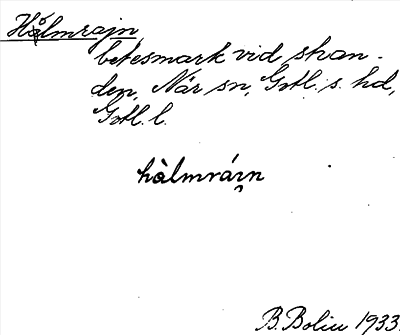 Hålmrajn
betesmark vid stran-
den, När sn, Gotl. s. hd,
Gotl. l.
hàlmráın
B. Bolin 1933.